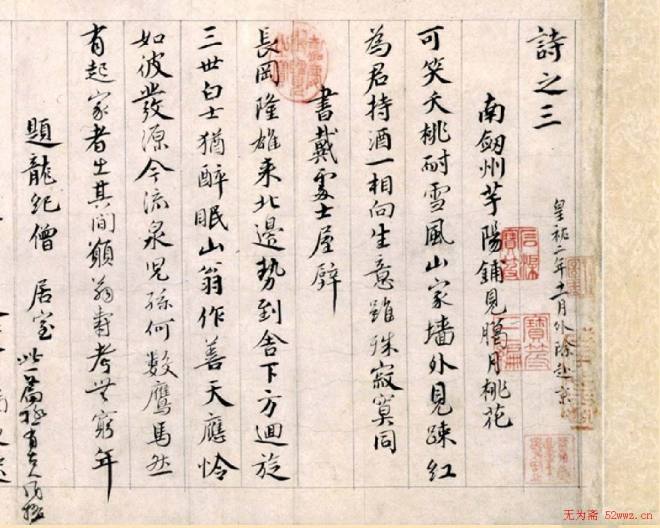 詩之三
皇祐二年十一月外除赴京
南劔州芋陽鋪見臈月桃花
可笑夭桃耐雪風山家墻外見疎紅
為君持酒一相向生意雖殊寂寞同
書戴處士屋壁
長岡隆雄来北邊勢到舍下方迴旋
三世白士猶醉眠山翁作善天應憐
如彼發源今流泉兒孫何數鷹馬然
有起家者生其間願翁壽考無窮年
題龍紀僧居室
此一篇極有古人風格
无为斋 52wwz.cn